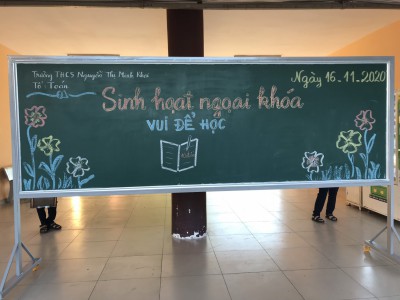 Trường THCS Nguyễn Thị Minh Khai
Tổ: Toán
Ngày 16-11-2020
Sinh hoạt ngoại khóa
VUI ĐỂ HỌC